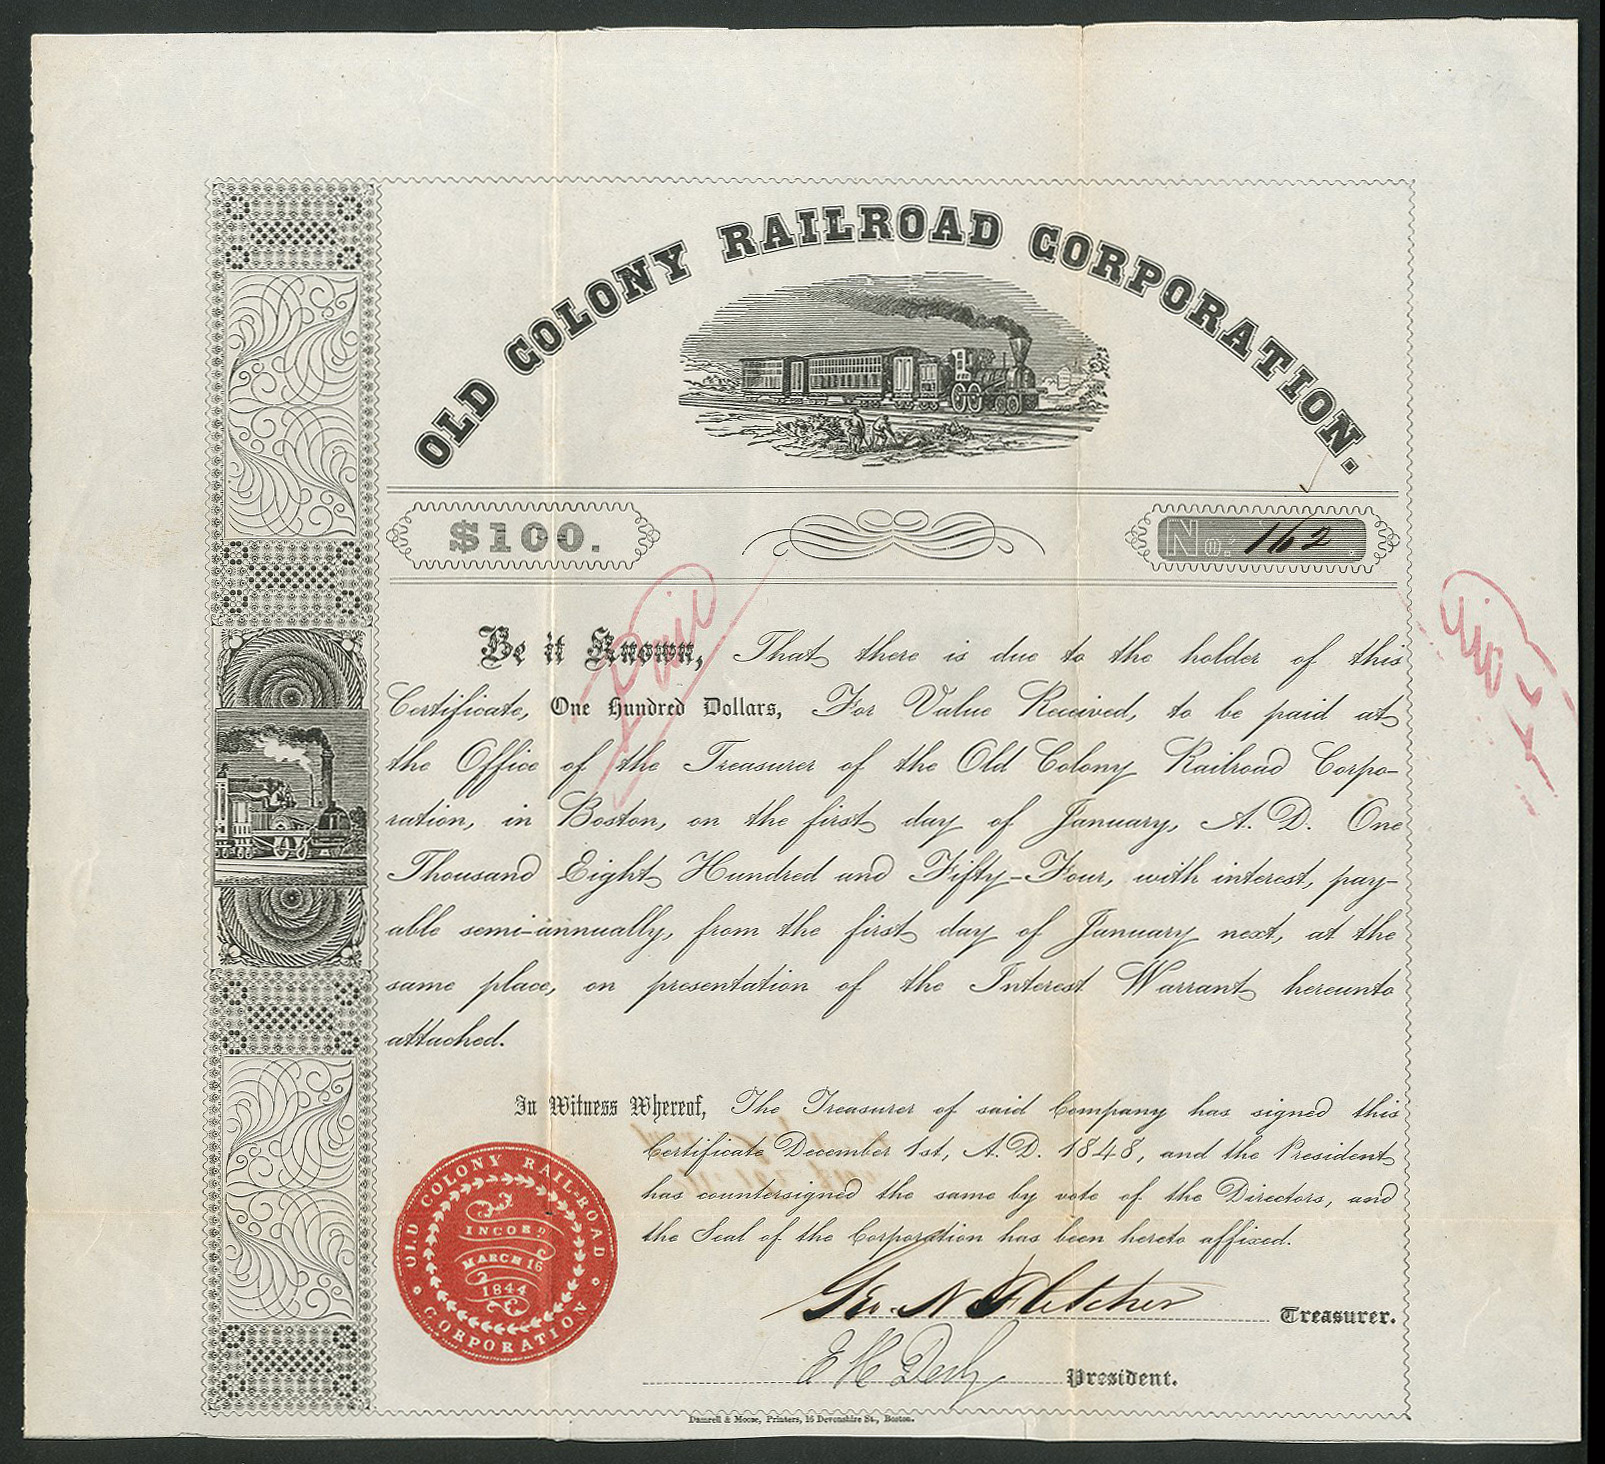 OLD COLONY RAILROAD CORPORATION.
$100.
No. 162
Paid
Be it Known, That there is due to the holder of this
Certificate, One Hundred Dollars, For Value Received, to be paid at
the Office of the Treasurer of the Old Colony Railroad Corpo-
ration, in Boston, on the first day of January, A. D. One
Thousand Eight Hundred and Fifty-Four, with interest, pay-
able semi-annually, from the first day of January next, at the
same place, on presentation of the Interest Warrant hereunto
attached.
In Witness Whereof, The Treasurer of said Company has signed this
Certificate December 1st, A. D. 1848, and the President
has countersigned the same by vote of the Directors, and
the Seal of the Corporation has been hereto affixed.
OLD COLONY RAIL-ROAD
CORPORATION
INCORD
MARCH 16
1844
Geo. N Fletcher Treasurer.
E H Derby President.
Damrell & Moore, Printers, 16 Devonshire St., Boston.